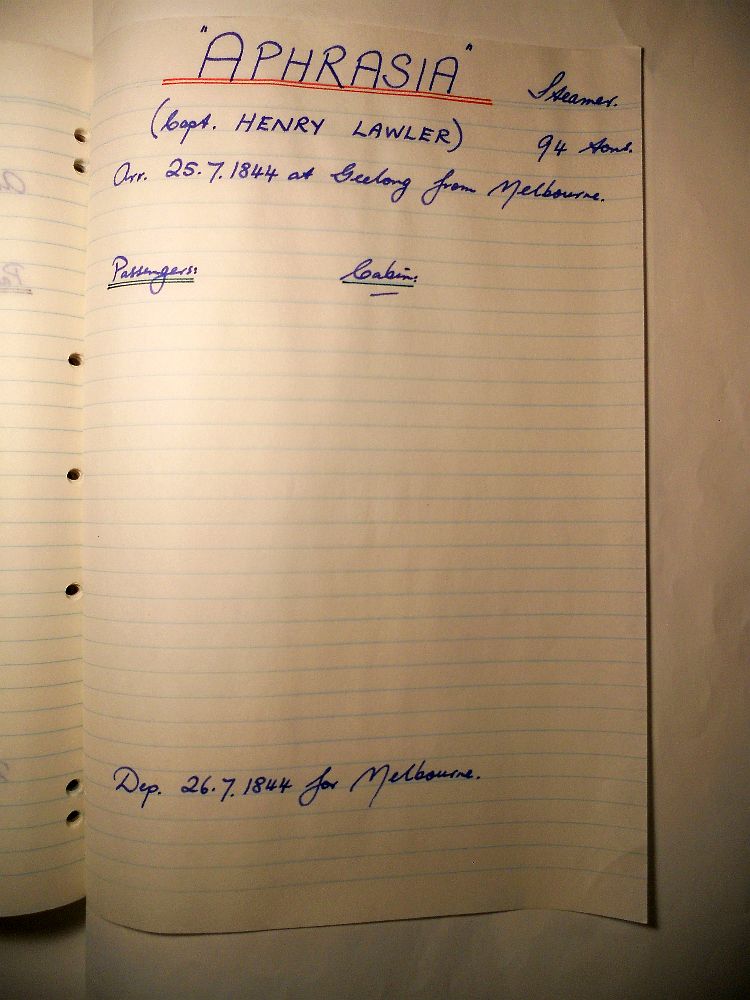 "APHRASIA" Steamer.
(Capt. HENRY LAWLER) 94 tons.
Arr. 25.7.1844 at Geelong from Melbourne.
Passengers: Cabin:
Dep. 26.7.1844 for Melbourne.